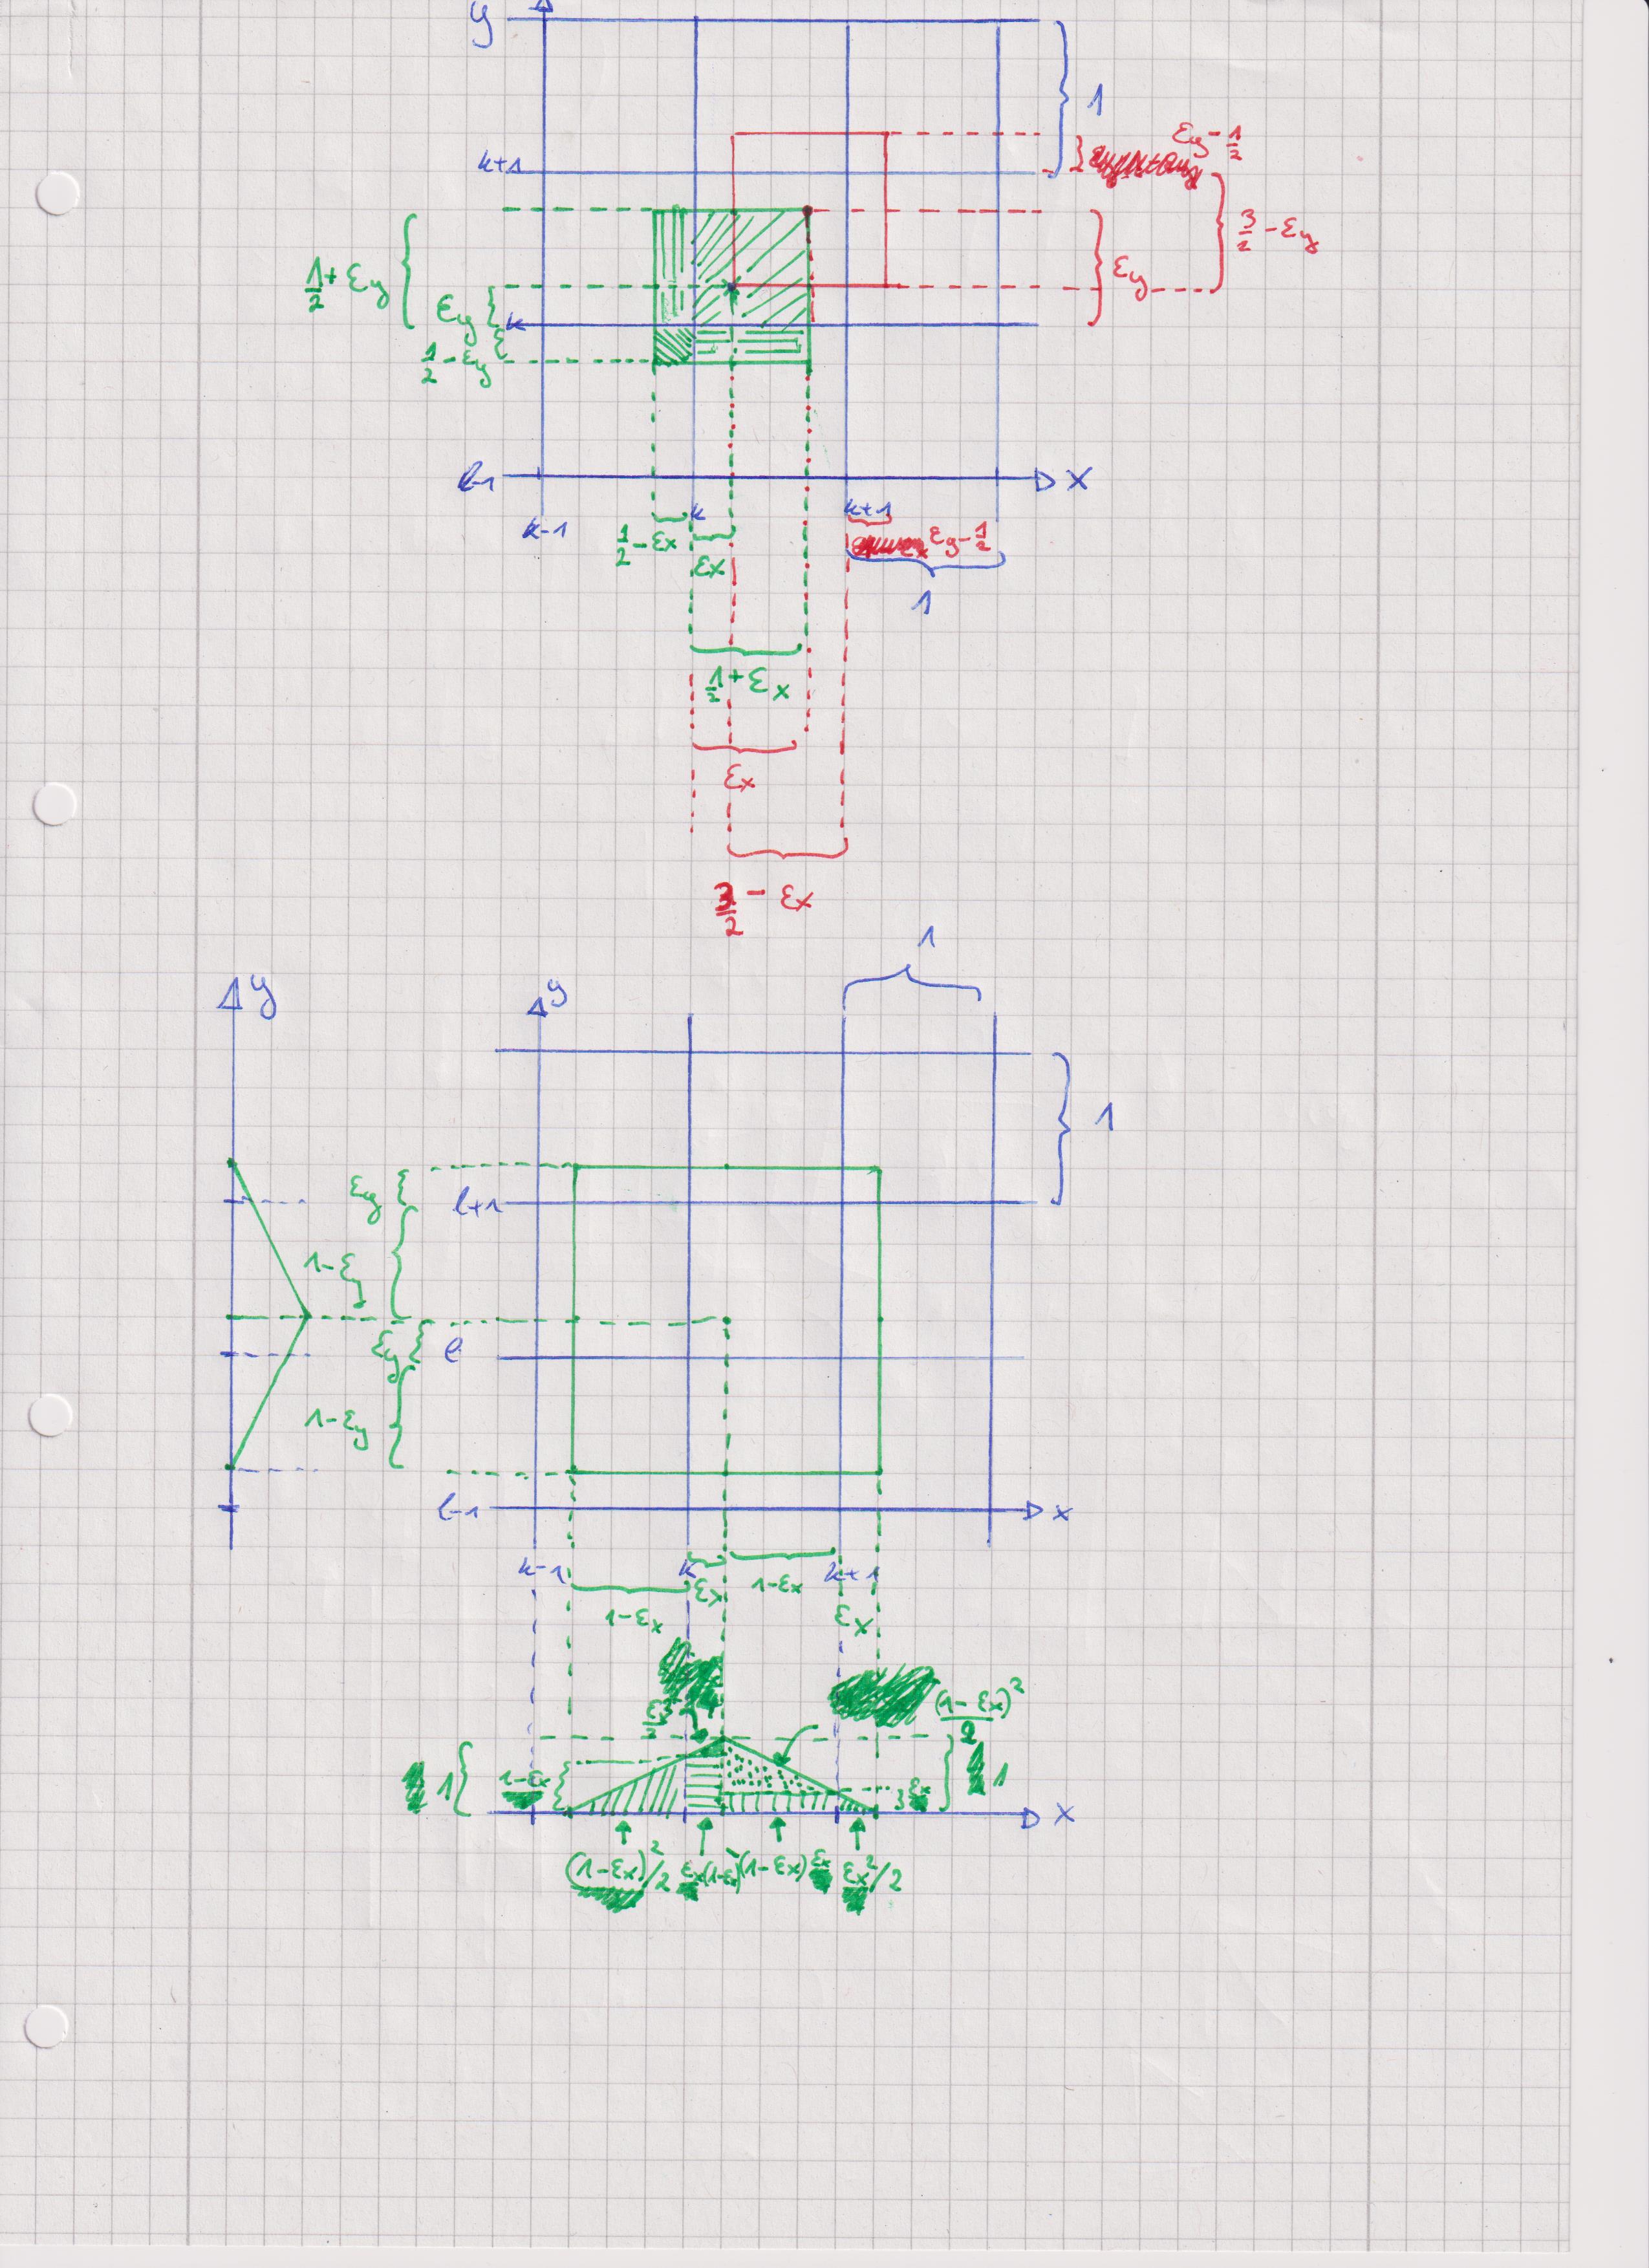 y
1
εy - 1/2
k+1
3/2 - εy
1/2 + εy
εy
εy
k
1/2 - εy
l-1
x
k-1
k
k+1
1/2 - εx
εx
εy - 1/2
1
1/2 + εx
εx
3/2 - εx
1
y
y
1
εy
l+1
1-εy
εy
l
1-εy
l-1
x
k-1
k
k+1
εx
1-εx
1-εx
εx
(1-εx)²/2
1
1-εx
εx
1
x
(1-εx)²/2
εx(1-εx)
(1-εx)εx
εx²/2